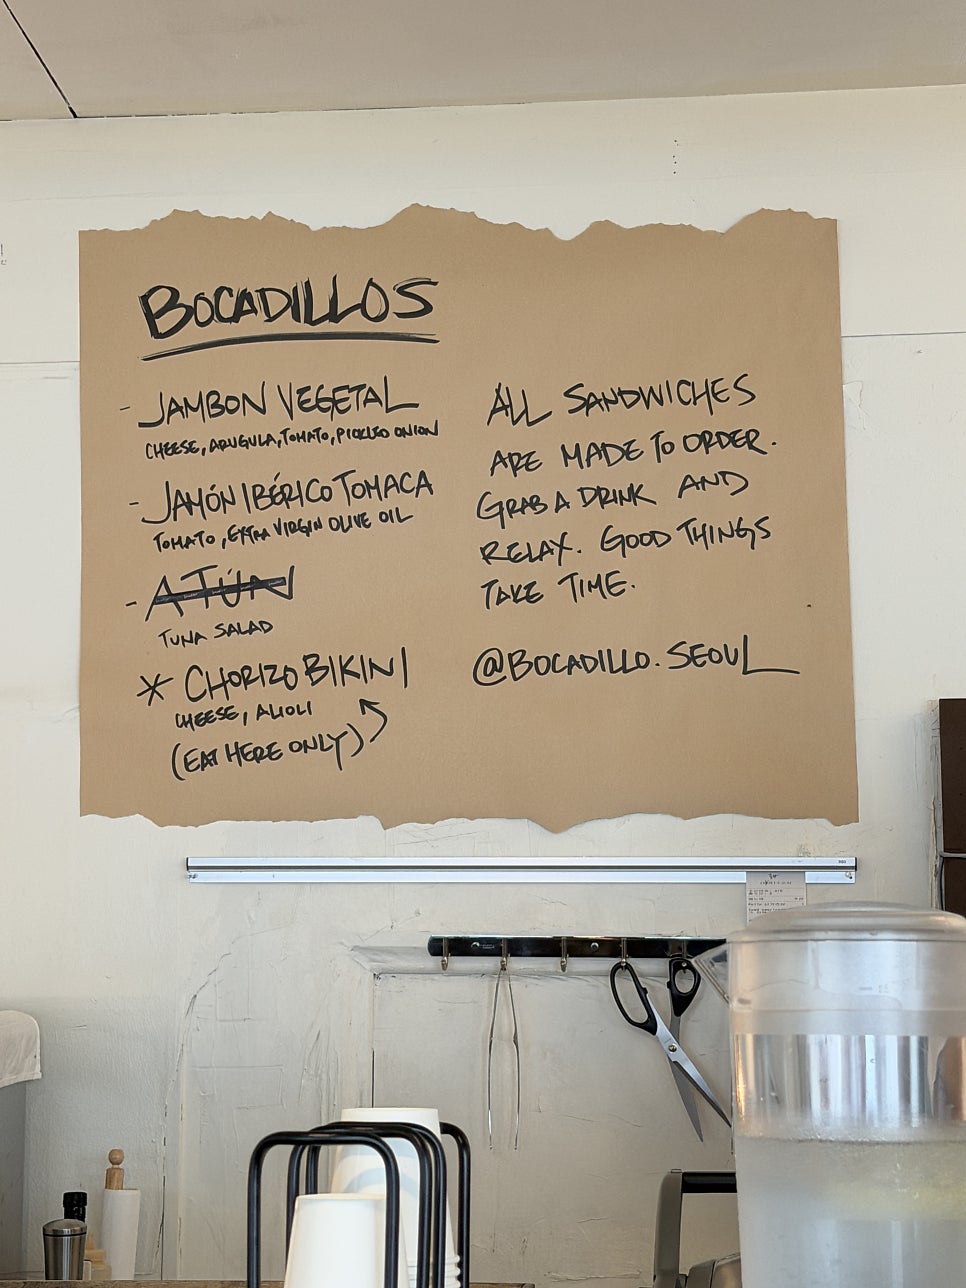 BOCADILLOS
- JAMBON VEGETAL
CHEESE, ARUGULA, TOMATO, PICKLED ONION
- JAMÓN IBÉRICO TOMACA
TOMATO, EXTRA VIRGIN OLIVE OIL
- ATÚN
TUNA SALAD
* CHORIZO BIKINI
CHEESE, ALIOLI
(EAT HERE ONLY)
ALL SANDWICHES
ARE MADE TO ORDER.
GRAB A DRINK AND
RELAX. GOOD THINGS
TAKE TIME.
@BOCADILLO.SEOUL